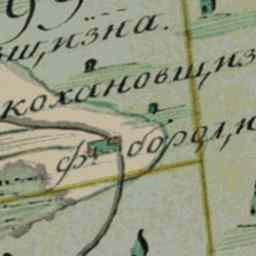 99
вщ,изна.
кохановщ,из
ф. бород,и